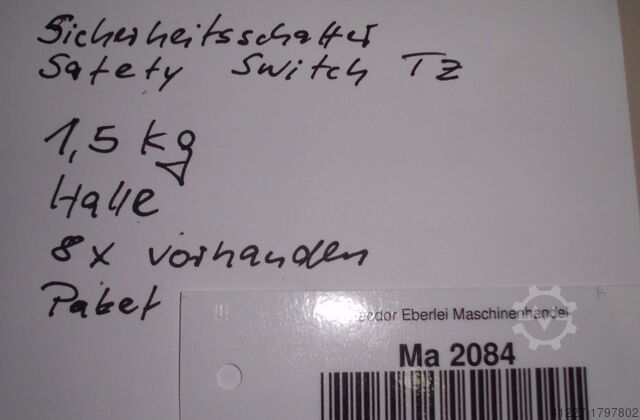 Sicherheitsschalter
Safety Switch TZ
1,5 kg
Halle
8x vorhanden
Paket
eodor Eberlei Maschinenhandel
Ma 2084
41227-1797802